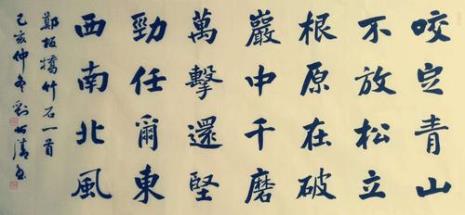 咬定青山
不放松立
根原在破
巖中千磨
萬擊還堅
勁任爾東
西南北風
鄭板橋竹石一首
己亥仲冬劉清書